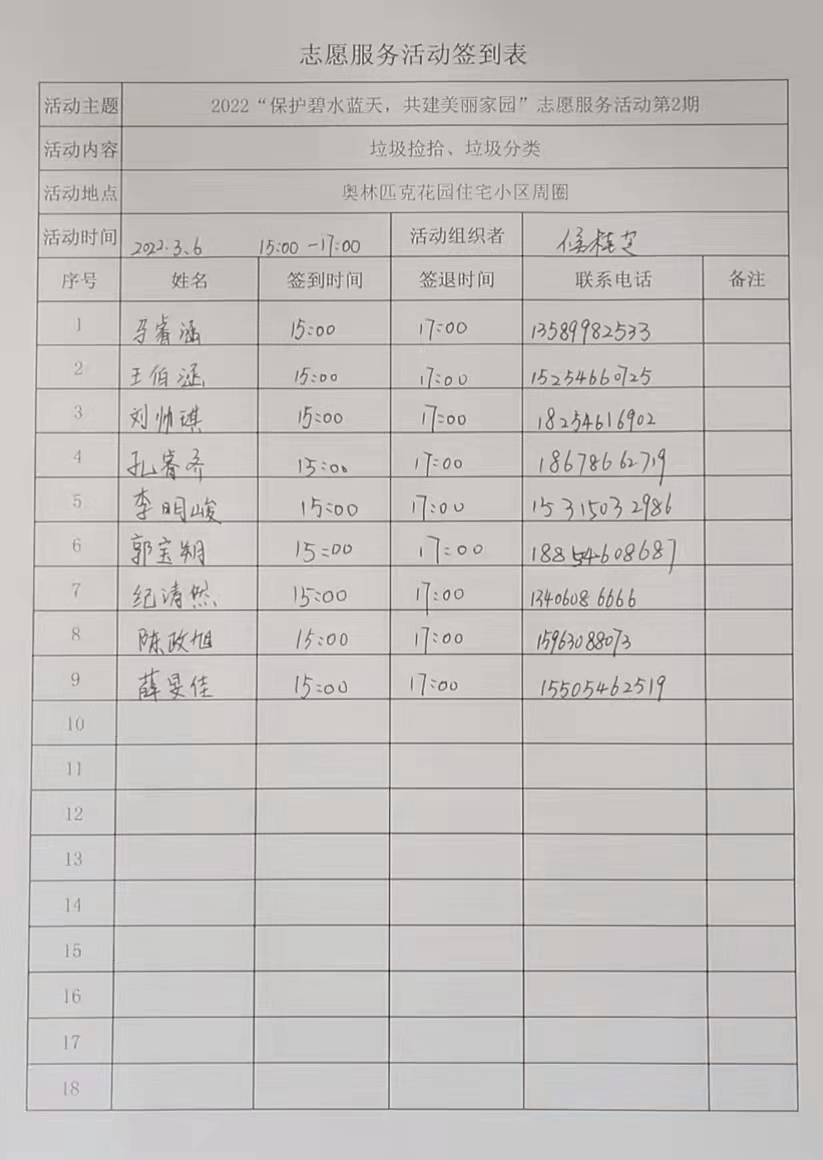 志愿服务活动签到表
活动主题 2022“保护碧水蓝天，共建美丽家园”志愿服务活动第2期
活动内容 垃圾捡拾、垃圾分类
活动地点 奥林匹克花园住宅小区周圈
活动时间 2022.3.6 15:00-17:00 活动组织者 侯桂芝
序号 姓名 签到时间 签退时间 联系电话 备注
1 马睿涵 15:00 17:00 13589982533
2 王伯涵 15:00 17:00 15254660725
3 刘帅琪 15:00 17:00 18254616902
4 孔睿齐 15:00 17:00 18678662719
5 李明峻 15:00 17:00 15315032986
6 郭宝翔 15:00 17:00 18854608687
7 纪清然 15:00 17:00 13406086666
8 陈政旭 15:00 17:00 15963088073
9 薛旻佳 15:00 17:00 15505462519
10
11
12
13
14
15
16
17
18